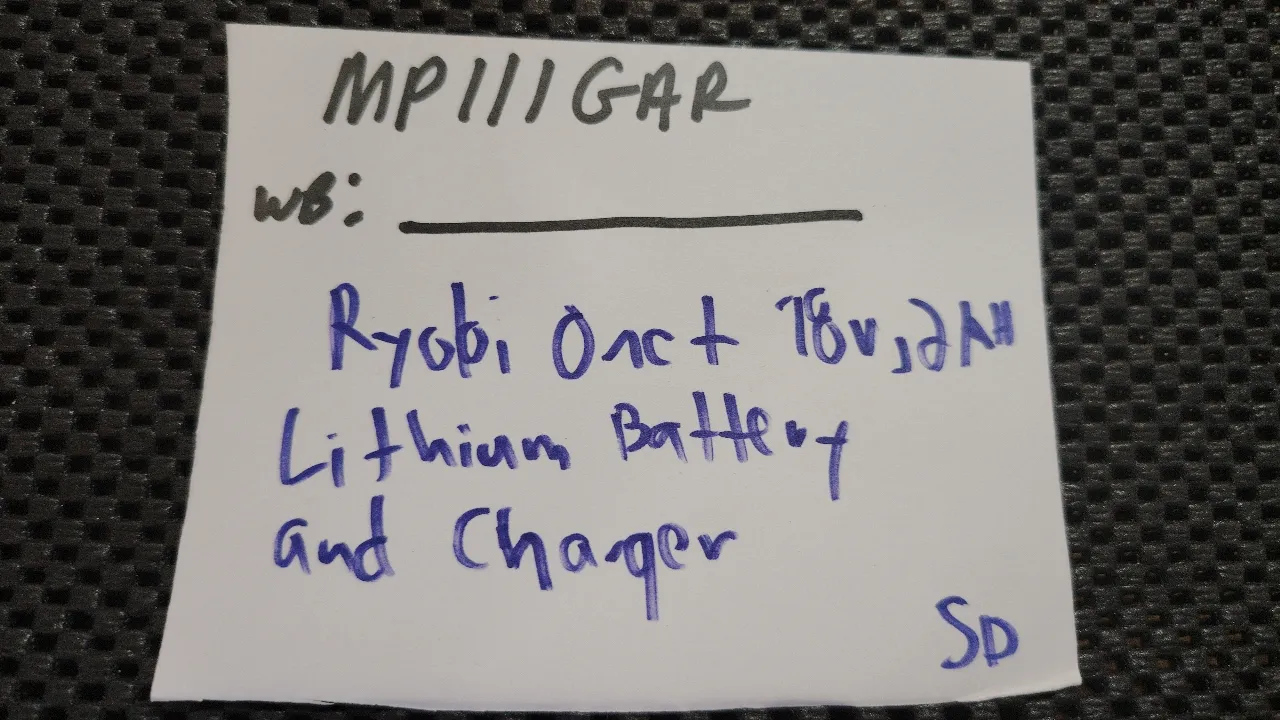 MP111GAR
WB:
Ryobi One+ 18v, 2AH
Lithium Battery
and Charger
SD